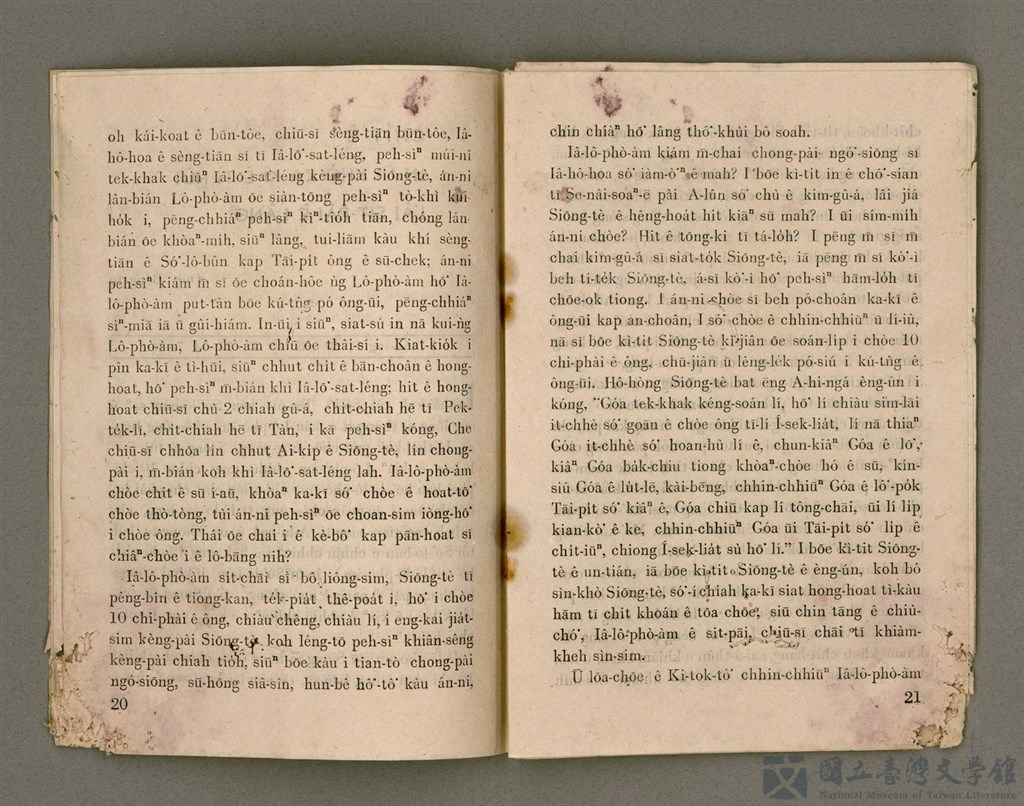 oh kái-koat ê būn-tôe, chiū-sī sèng-tiān būn-tôe, Iâ-
hô-hoa ê sèng-tiān sī tī Iâ-lō͘-sat-léng, peh-sìⁿ múi-nî
tek-khak chiūⁿ Iâ-lō͘-sat-léng kèng-pài Siōng-tè, án-ni
lân-bián Lô-phò-àm ōe siàn-tōng peh-sìⁿ tò-khì kui-
ho̍k i, pēng-chhiáⁿ peh-sìⁿ kìⁿ-tio̍h tiān, chóng lân-
bián ōe khòaⁿ-mih, siūⁿ lâng, tui-liām kàu khí sèng-
tiān ê Só͘-lô-bûn kap Tāi-pit ông ê sū-chek; án-ni
peh-sìⁿ kiám m̄ sī ōe choán-hôe ǹg Lô-phò-àm hō͘ Iâ-
lô-phò-àm put-tàn bōe kú-tn̂g pó ông-ūi, pēng-chhiáⁿ
sìⁿ-miā iā ū gûi-hiám. In-ūi i siūⁿ, siat-sú in nā kui-ǹg
Lô-phò-àm, Lô-phò-àm chiū ōe thâi-sí i. Kiat-kio̍k i
pīn ka-kī ê tì-hūi, siūⁿ chhut chit ê bān-choân ê hong-
hoat, hō͘ peh-sìⁿ m̄-bián khì Iâ-lō͘-sat-léng; hit ê hong-
hoat chiū-sī chù 2 chiah gû-á, chi̍t-chiah hē tī Pek-
te̍k-lī, chi̍t-chiah hē tī Tàn, i kā peh-sìⁿ kóng, Che
chiū-sī chhōa lín chhut Ai-ki̍p ê Siōng-tè, lín chong-
pài i, m̄-bián koh khì Iâ-lō͘-sat-léng lah. Iâ-lô-phò-àm
chòe chit ê sū í-aū, khòaⁿ ka-kī só͘ chòe ê hoat-tō͘
chòe thò-tòng, tùi án-ni peh-sìⁿ ōe choan-sim iòng-hō͘
i chòe ông. Thái ōe chai i ê kè-bô͘ kap pān-hoat sī
chiâⁿ-chòe i ê lô-bāng nih?
Iâ-lô-phò-àm si̍t-chāi sī bô liông-sim, Siōng-tè tī
pêng-bîn ê tiong-kan, te̍k-pia̍t thê-poa̍t i, hō͘ i chòe
10 chi-phài ê ông, chiàu chêng, chiàu lí, i eng-kai jia̍t-
sim kèng-pài Siōng-tè, koh léng-tō peh-sìⁿ khiân-sêng
kèng-pài chiah tio̍h, siūⁿ bōe kàu i tian-tò chong-pài
ngó-siōng, sū-hōng siâ-sîn, hun-bê hô͘-tô͘ kàu án-ni,
20
chin chiàⁿ hō͘ lâng thô͘-khùi bô soah.
Iâ-lô-phò-àm kiám m̄-chai chong-pài ngó͘-siōng sī
Iâ-hô-hoa só͘ iàm-ò͘ⁿ ê mah? I bōe kì-tit in ê chó͘-sian
tī Se-nâi-soaⁿ-ē pài A-lûn só͘ chù ê kim-gû-á, lâi jiá
Siōng-tè ê hêng-hoa̍t hit kiāⁿ sū mah? I ūi sím-mih
án-ni chòe? Hit ê tōng-ki tī tá-lo̍h? I pēng m̄ sī m̄
chai kim-gû-á sī siat-to̍k Siōng-tè, iā pēng m̄ sī kò͘-ì
beh tí-te̍k Siōng-tè, á-sī kò͘-ì hō͘ peh-sìⁿ hām-lo̍h tī
chōe-ok tiong. I án-ni chòe sī beh pó-choân ka-kī ê
ông-ūi kap an-choân, I só͘ chòe ê chhin-chhiūⁿ ū lí-iû,
nā sī bōe kì-tit Siōng-tè kì-jiân ōe soán-li̍p i chòe 10
chi-phài ê ông, chū-jiân ū lêng-le̍k pó-siú i kú-tn̂g ê
ông-ūi. Hô-hòng Siōng-tè bat ēng A-hi-ngá èng-ún i
kóng, “Góa tek-khak kéng-soán lí, hō͘ lí chiàu sim-lāi
it-chhè só͘ goān ê chòe ông tī-lí Í-sek-lia̍t, lí nā thiaⁿ
Góa it-chhè só͘ hoan-hù lí ê, chun-kiâⁿ Góa ê lō͘,
kiâⁿ Góa ba̍k-chiu tiong khòaⁿ-chòe hó ê sū, kín-
siú Góa ê lu̍t-lē, kài-bēng, chhin-chhiūⁿ Góa ê lô͘-po̍k
Tāi-pit só͘ kiâⁿ ê, Góa chiū kap lí tông-chāi, ūi lí li̍p
kian-kò͘ ê ke, chhin-chhiūⁿ Góa ūi Tāi-pit só͘ li̍p ê
chi̍t-iūⁿ, chiong Í-sek-lia̍t sù hō͘ lí.” I bōe kì-tit Siōng-
tè ê un-tián, iā bōe kì-tit Siōng-tè ê èng-ún, koh bô
sìn-khò Siōng-tè, só͘-í chiah ka-kī siat hong-hoat tì-kàu
hām tī chit khoán ê tōa chōe, siū chin tāng ê chiù-
chó͘, Iâ-lô-phò-àm ê sit-pāi, chiū-sī chāi tī khiàm-
kheh sìn-sim.
Ū lōa-chōe ê Ki-tok-tô͘ chhin-chhiūⁿ Iâ-lô-phò-àm
21
國立臺灣文學館
National Museum of Taiwan Literature